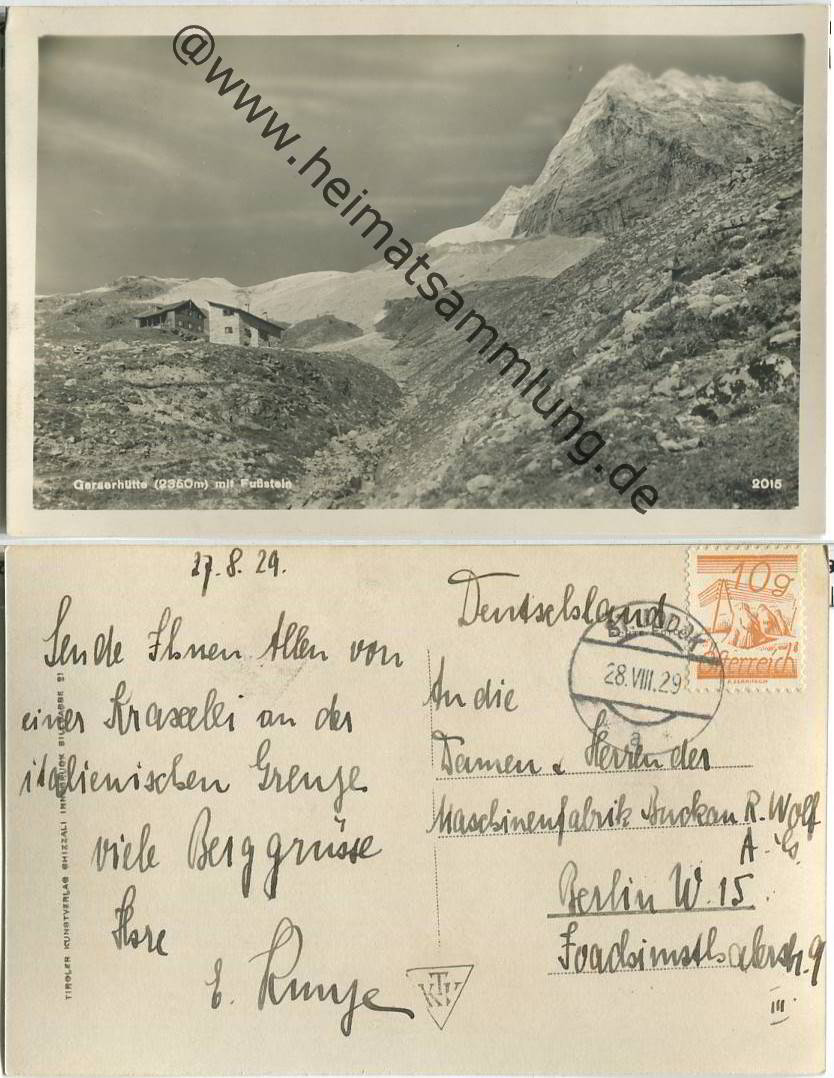 @www.heimatsammlung.de
Geraerhütte (2350m) mit Fußstein
2015
27.8.29.
Sende Ihnen Allen von
einer Kraxelei an der
italienischen Grenze
viele Berggrüsse
Ihre
E. Kunze
TIROLER KUNSTVERLAG CHIZZALI INNSBRUCK
Deutschland
10g
Österreich
28.VIII.29
a
An die
Damen & Herren der
Maschinenfabrik Buckau R. Wolf
A. G.
Berlin W. 15.
Joachimsthalerstr. 9
III
TKV